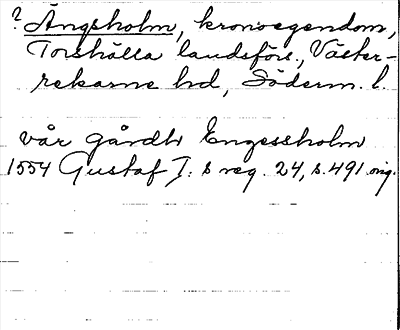 ? Ängsholm, kronoegendom,
Torshälla landsförs., Väster-
rekarne hd, Söderm. l.
vår gårdh Engessholm
1554 Gustaf I:s reg. 24, s. 491 orig.